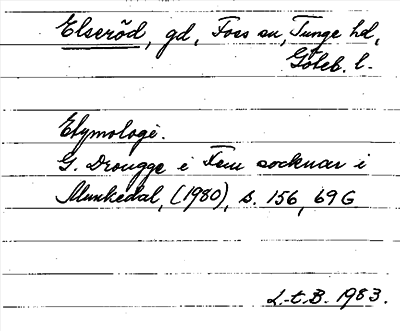 Elseröd, gd, Foss sn, Tunge hd,
Göteb. l.
Etymologi.
G. Drougge i Fem socknar i
Munkedal, (1980), s. 156, 69G
L.t.B. 1983.